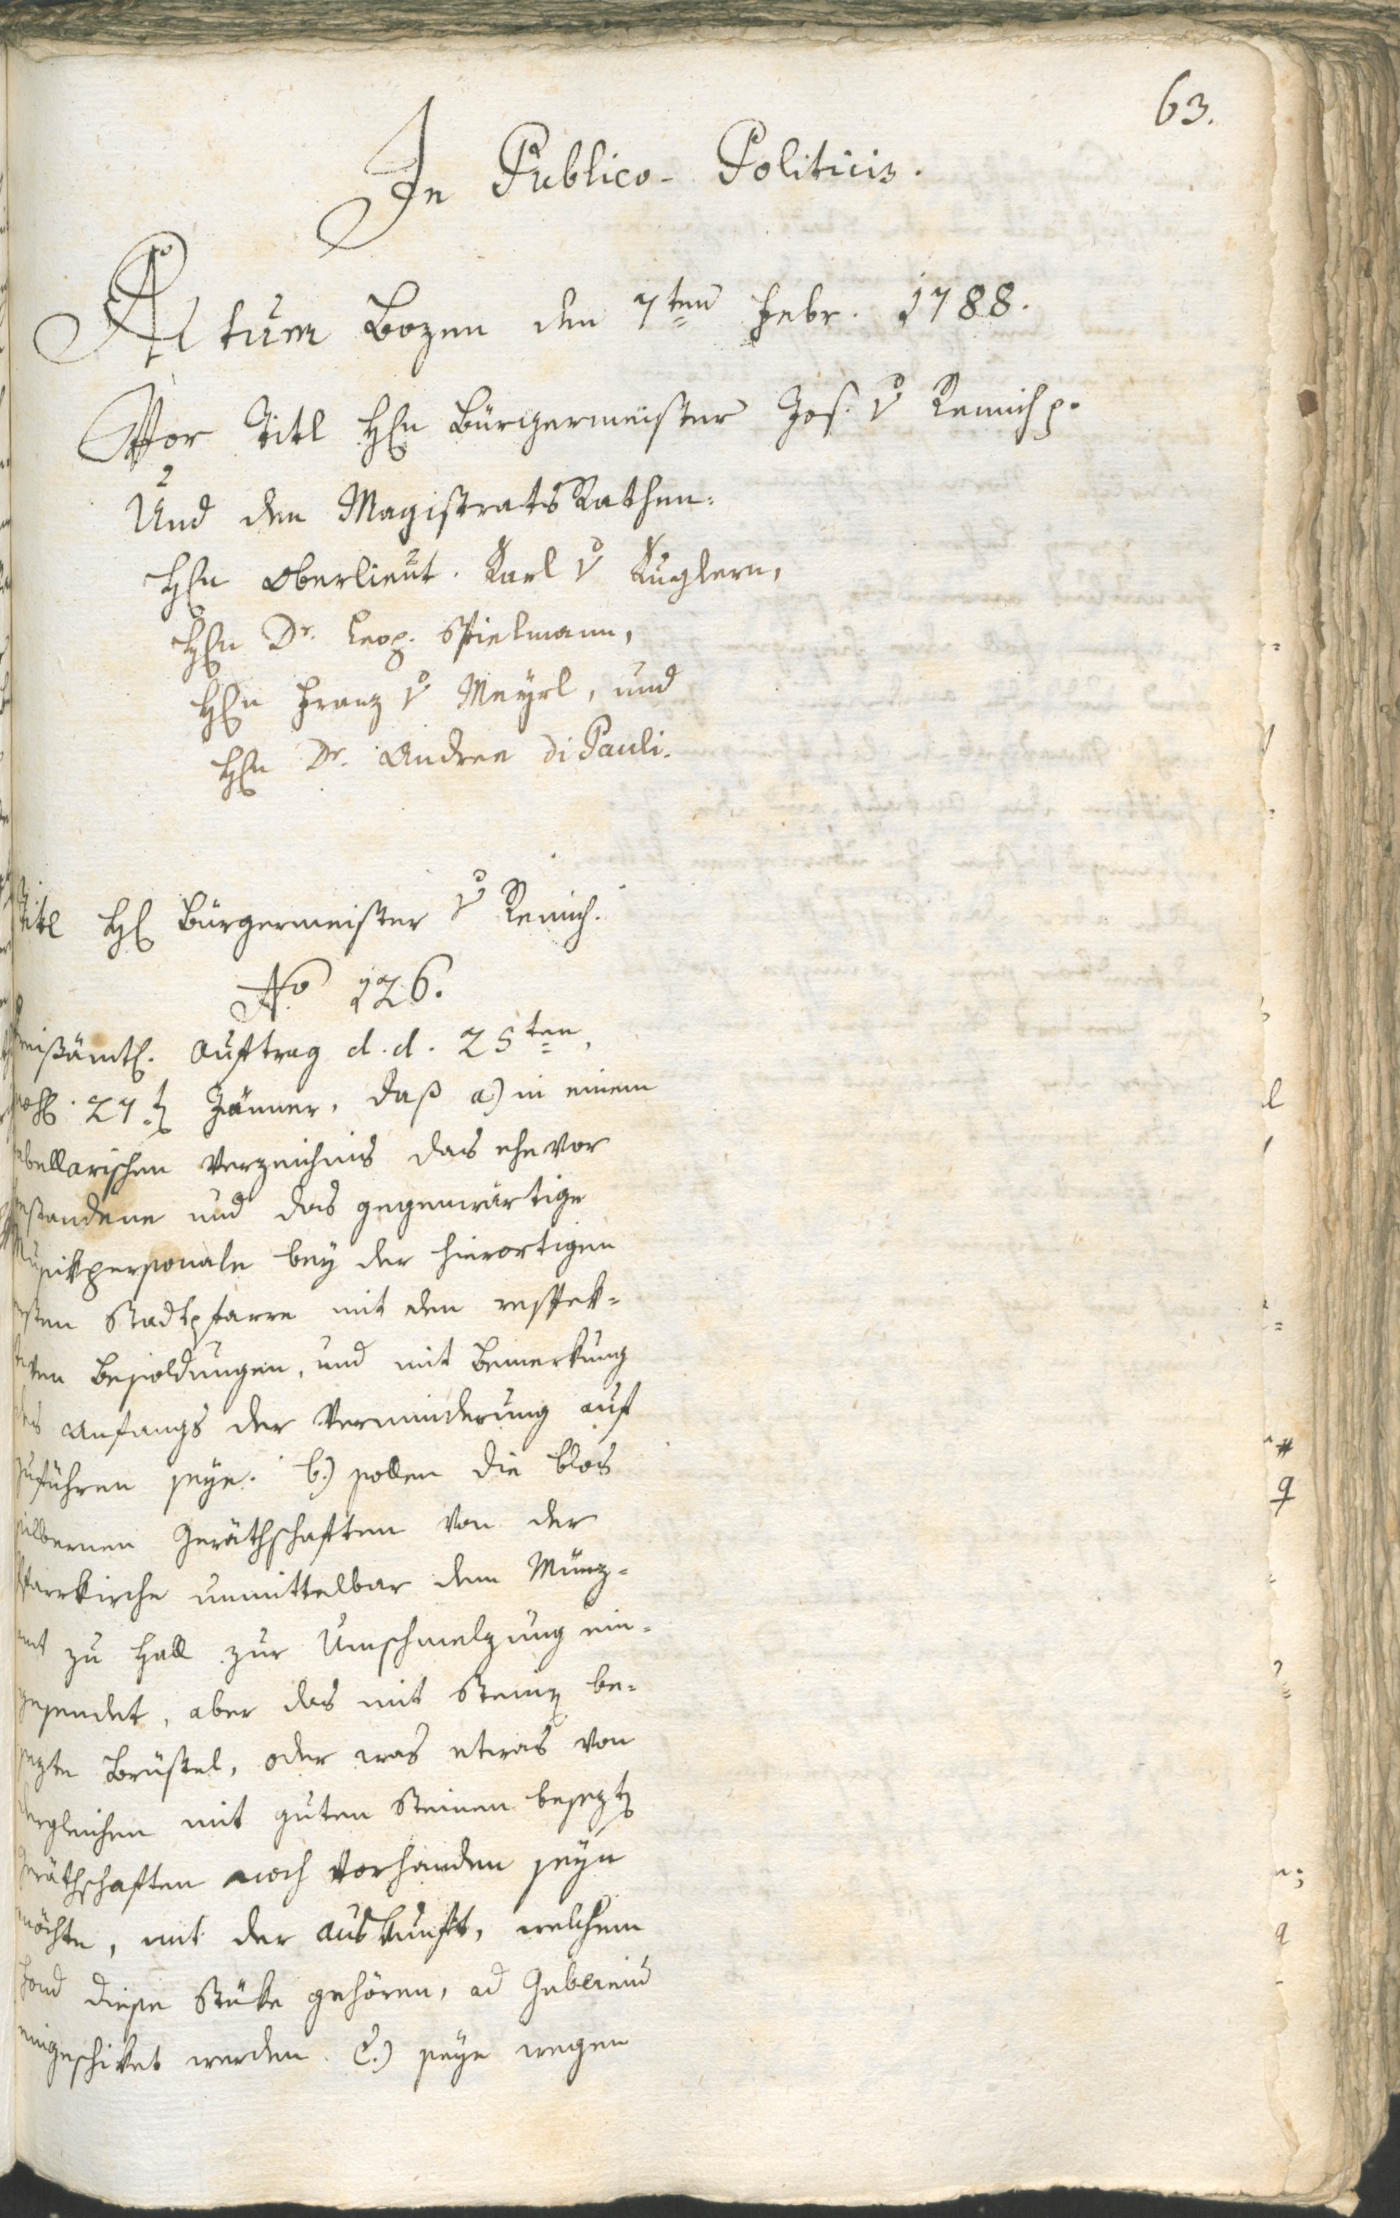 63.
In Publico-Politicis.
Actum Bozen den 7ten Febr. 1788.
Vor Titl Hℓn Bürgermeister Jos. v Remich p.
Und den Magistrats Räthen.
Hℓn Oberlieut. Karl v Kuglern,
Hℓn Dr. Leop. Spielmann,
Hℓn Franz v Meyrl, und
Hℓn Dr. Andree di Pauli.
Titl Hℓ Bürgermeister v Remich.
No 126.
Kreisämtl. Auftrag d. d. 25ten,
27t Jänner, daß a) in einem
tabellarischen Verzeichnis das ehevor
bestandene und das gegenwärtige
Musikpersonale bey der hierortigen
Stadtpfarre mit den respek=
tiven Besoldungen, und mit Bemerkung
des Anfangs der Verminderung auf
zuführen seye. b.) sollen die blos
silbernen Geräthschaften von der
Pfarrkirche unmittelbar dem Münz=
amt zu Hall zur Umschmelzung ein=
gesendet, aber das mit Stein be=
sezte Brüstel, oder was etwas von
dergleichen mit guten Steinen besezt
Geräthschaften noch vorhanden seyn
möchte, mit der Auskunft, welchem
Fond diese Stüke gehören, ad Gubernium
eingeschiket werden. C.) seye wegen